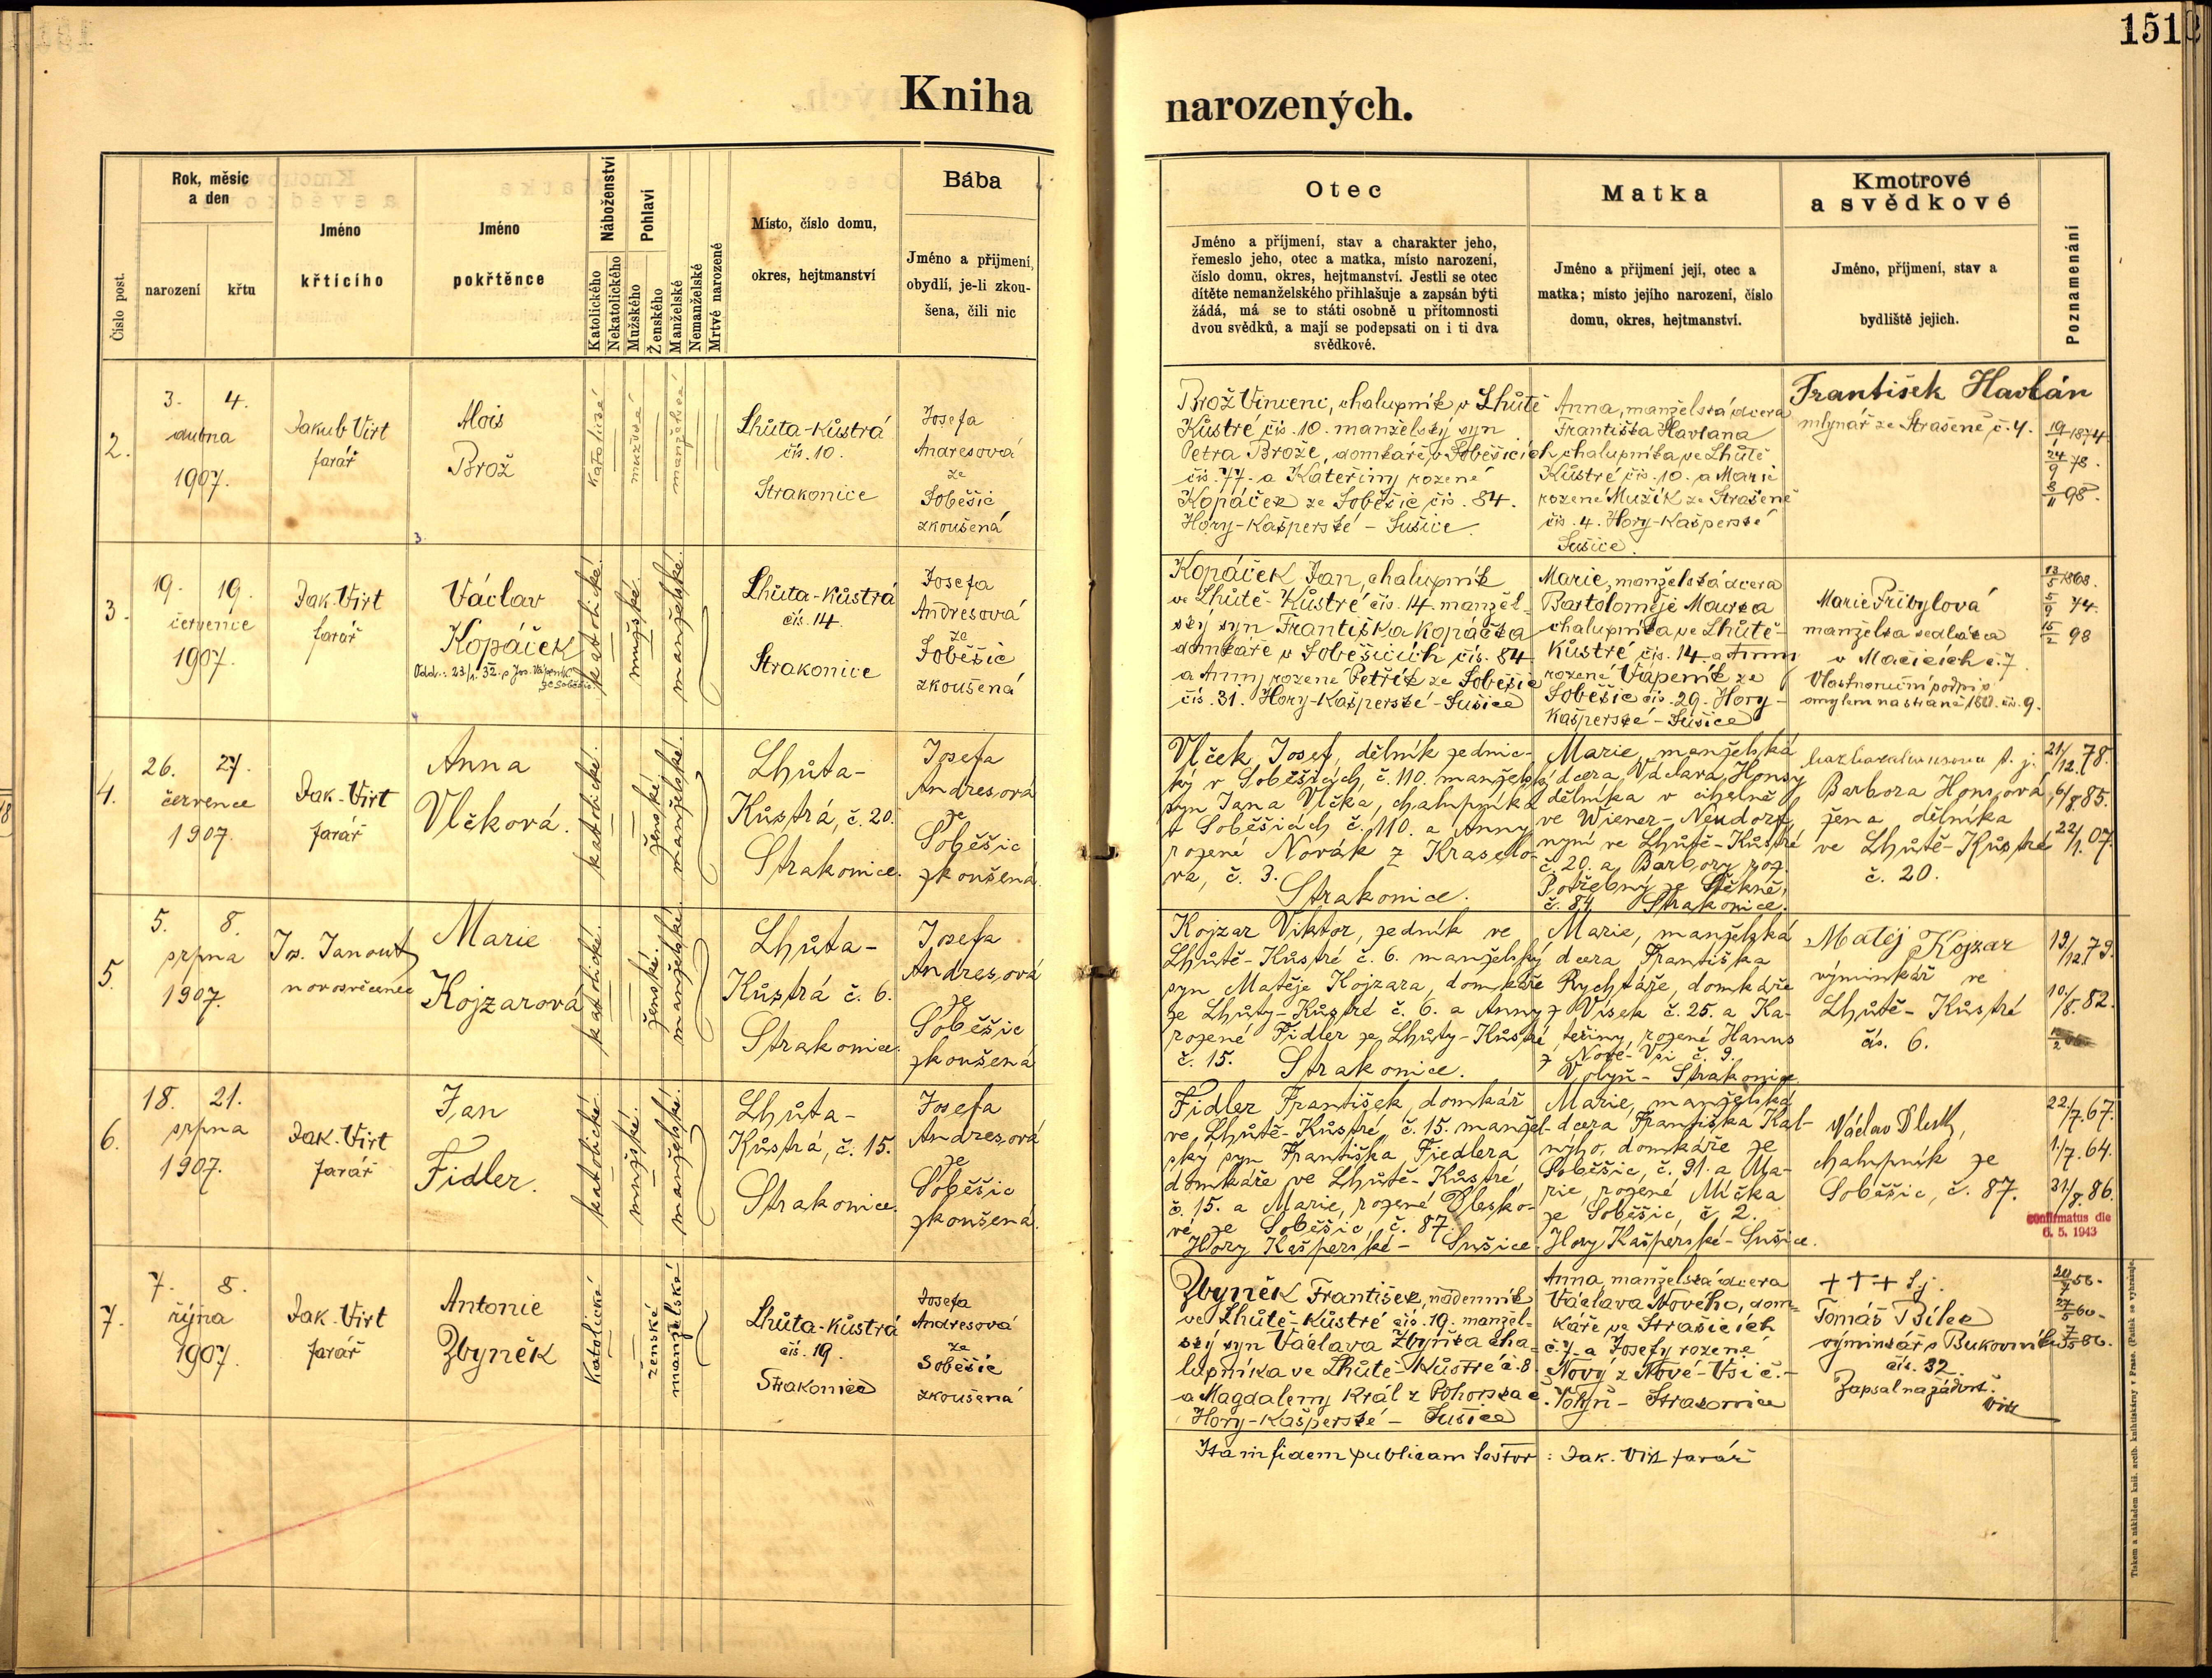 151
Kniha narozených.
Číslo post.
Rok, měsíc
a den
narození
křtu
Jméno
křtícího
Jméno
pokřtěnce
Náboženství
Katolického
Nekatolického
Pohlaví
Mužského
Ženského
Manželské
Nemanželské
Mrtvě narozené
Místo, číslo domu,
okres, hejtmanství
Bába
Jméno a přijmení,
obydlí, je-li zkou-
šena, čili nic
Otec
Jméno a příjmení, stav a charakter jeho,
řemeslo jeho, otec a matka, místo narození,
číslo domu, okres, hejtmanství. Jestli se otec
dítěte nemanželského přihlašuje a zapsán býti
žádá, má se to státi osobně u přítomnosti
dvou svědků, a mají se podepsati on i ti dva
svědkové.
Matka
Jméno a přijmení její, otec a
matka; místo jejího narození, číslo
domu, okres, hejtmanství.
Kmotrové
a svědkové
Jméno, příjmení, stav a
bydliště jejich.
Poznamenání
2.
3. 4.
dubna
1907.
Jakub Virt
farář
Alois
Brož
katolické
mužské
manželské
Lhůta-Kůstrá
čís. 10.
Strakonice
Josefa
Andresová
ze
Soběšic
zkoušená
Brož Vincenc, chalupník v Lhůtě
Kůstré čís. 10. manželský syn
Petra Brože, domkáře v Soběšicích
čís. 77. a Kateřiny rozené
Kopáček ze Soběšic čís. 84.
Hory-Kašperské - Sušice.
Anna, manželská dcera
Františka Havlana
chalupníka ve Lhůtě
Kůstré čís. 10. a Marie
rozené Mužík ze Strašené
čís. 4. Hory-Kašperské
Sušice.
František Havlán
mlynář ze Strašené č. 4.
19/1 1874
24/9 78.
8/11 98.
3.
19. 19.
července
1907.
Jak. Virt
farář
Václav
Kopáček
Odd.: 23/1. 32. s Jos. Vápeník
ze Soběšic
katolické.
mužské.
manželské.
Lhůta-Kůstrá
čís. 14.
Strakonice
Josefa
Andresová
ze
Soběšic
zkoušená
Kopáček Jan, chalupník
ve Lhůtě-Kůstré čís. 14. manžel-
ský syn Františka Kopáčka
domkáře v Soběšicích čís. 84.
a Anny rozené Petřík ze Soběšic
čís. 31. Hory-Kašperské - Sušice
Marie, manželská dcera
Bartoloměje Maurea
chalupníka ve Lhůtě-
Kůstré čís. 14. a Anny
rozené Vápeník ze
Soběšic čís. 29. Hory-
Kašperské - Sušice
Marie Přibylová
manželka sedláka
v Mačicích č. 7
Vlastnoruční podpis
omylem na straně 150. čís. 9.
13/5 1868.
5/9 74.
15/2 98
4.
26. 27.
července
1907.
Jak. Virt
farář
Anna
Vlčková.
katolické.
ženské.
manželské.
Lhůta-
Kůstrá, č. 20.
Strakonice.
Josefa
Andresová
ze
Soběšic
zkoušená.
Vlček Josef, dělník zednic-
ký v Soběšicích č. 110. manželský
syn Jana Vlčka, chalupníka
v Soběšicích č. 110. a Anny
rozené Novák z Kraselo-
va, č. 3.
Strakonice.
Marie, manželská
dcera Václava Honsy
dělníka v cihelně
ve Wiener-Neudorf,
nyní ve Lhůtě-Kůstré
č. 20. a Barbory roz.
Potřebný ze Štěkně,
č. 84 Strakonice.
Barbora Honsová,
žena dělníka
ve Lhůtě-Kůstré
č. 20.
21/12. 78.
6/8. 85.
22/1. 07.
5.
5. 8.
srpna
1907.
Jos. Janout
novosvěcenec
Marie
Kojzarová
katolické.
ženské.
manželské.
Lhůta-
Kůstrá č. 6.
Strakonice.
Josefa
Andresová
ze
Soběšic
zkoušená
Kojzar Viktor, zedník ve
Lhůtě-Kůstré č. 6. manželský
syn Matěje Kojzara, domkáře
ze Lhůty-Kůstré č. 6. a Anny
rozené Fidler ze Lhůty-Kůstré
č. 15. Strakonice.
Marie, manželská
dcera Františka
Rychtáře, domkáře
z Vísek č. 25. a Ka-
teřiny, rozené Hanus
z Nové-Vsi č. 9.
Volyň - Strakonice.
Matěj Kojzar
výminkář ve
Lhůtě-Kůstré
čís. 6.
19/12. 79.
10./8. 82.
6.
18. 21.
srpna
1907.
Jak. Virt
farář
Jan
Fidler.
katolické.
mužské.
manželské.
Lhůta-
Kůstrá, č. 15.
Strakonice.
Josefa
Andresová
ze
Soběšic
zkoušená.
Fidler František, domkář
ve Lhůtě-Kůstré, č. 15. manžel-
ský syn Františka Fiedlera
domkáře ve Lhůtě-Kůstré,
č. 15. a Marie, rozené Blesko-
vé ze Soběšic, č. 87.
Hory Kašperské - Sušice.
Marie, manželská
dcera Františka Kal-
ného, domkáře ze
Soběšic, č. 91. a Ma-
rie, rozené Míčka
ze Soběšic, č. 2.
Hory Kašperské - Sušice.
Václav
chalupník ze
Soběšic, č. 87.
22./7. 67.
1/7. 64.
31/8. 86.
confirmatus die
6. 5. 1943
7.
7. 8.
října
1907
Jak. Virt
farář
Antonie
Zbyněk
Katolické
ženské
manželské
Lhůta-Kůstrá
čís. 19.
Strakonice
Josefa
Andresová
ze
Soběšic
zkoušená
Zbyněk František, nádenník
ve Lhůtě-Kůstré čís. 19. manžel-
ský syn Václava Zbyňka cha-
lupníka ve Lhůtě-Kůstré č. 8
a Magdaleny Král z Pohorska č.
Hory-Kašperské - Sušice
Anna, manželská dcera
Václava Nového, dom-
káře ve Strašicích
č. 7. a Josefy rozené
Nový z Nové-Vsi č. -
Volyň - Strakonice
+++
Tomáš Bílek
výminkář z Bukovníka
čís. 32.
Zapsal na žádost.
Virt
20/7 56.
27/5 60.
7/5 86.
Ita in fidem publicam testor: Jak. Virt farář
Tiskem a nákladem kníž. arcib. knihtiskárny v Praze. (Patisk se vyhražuje.